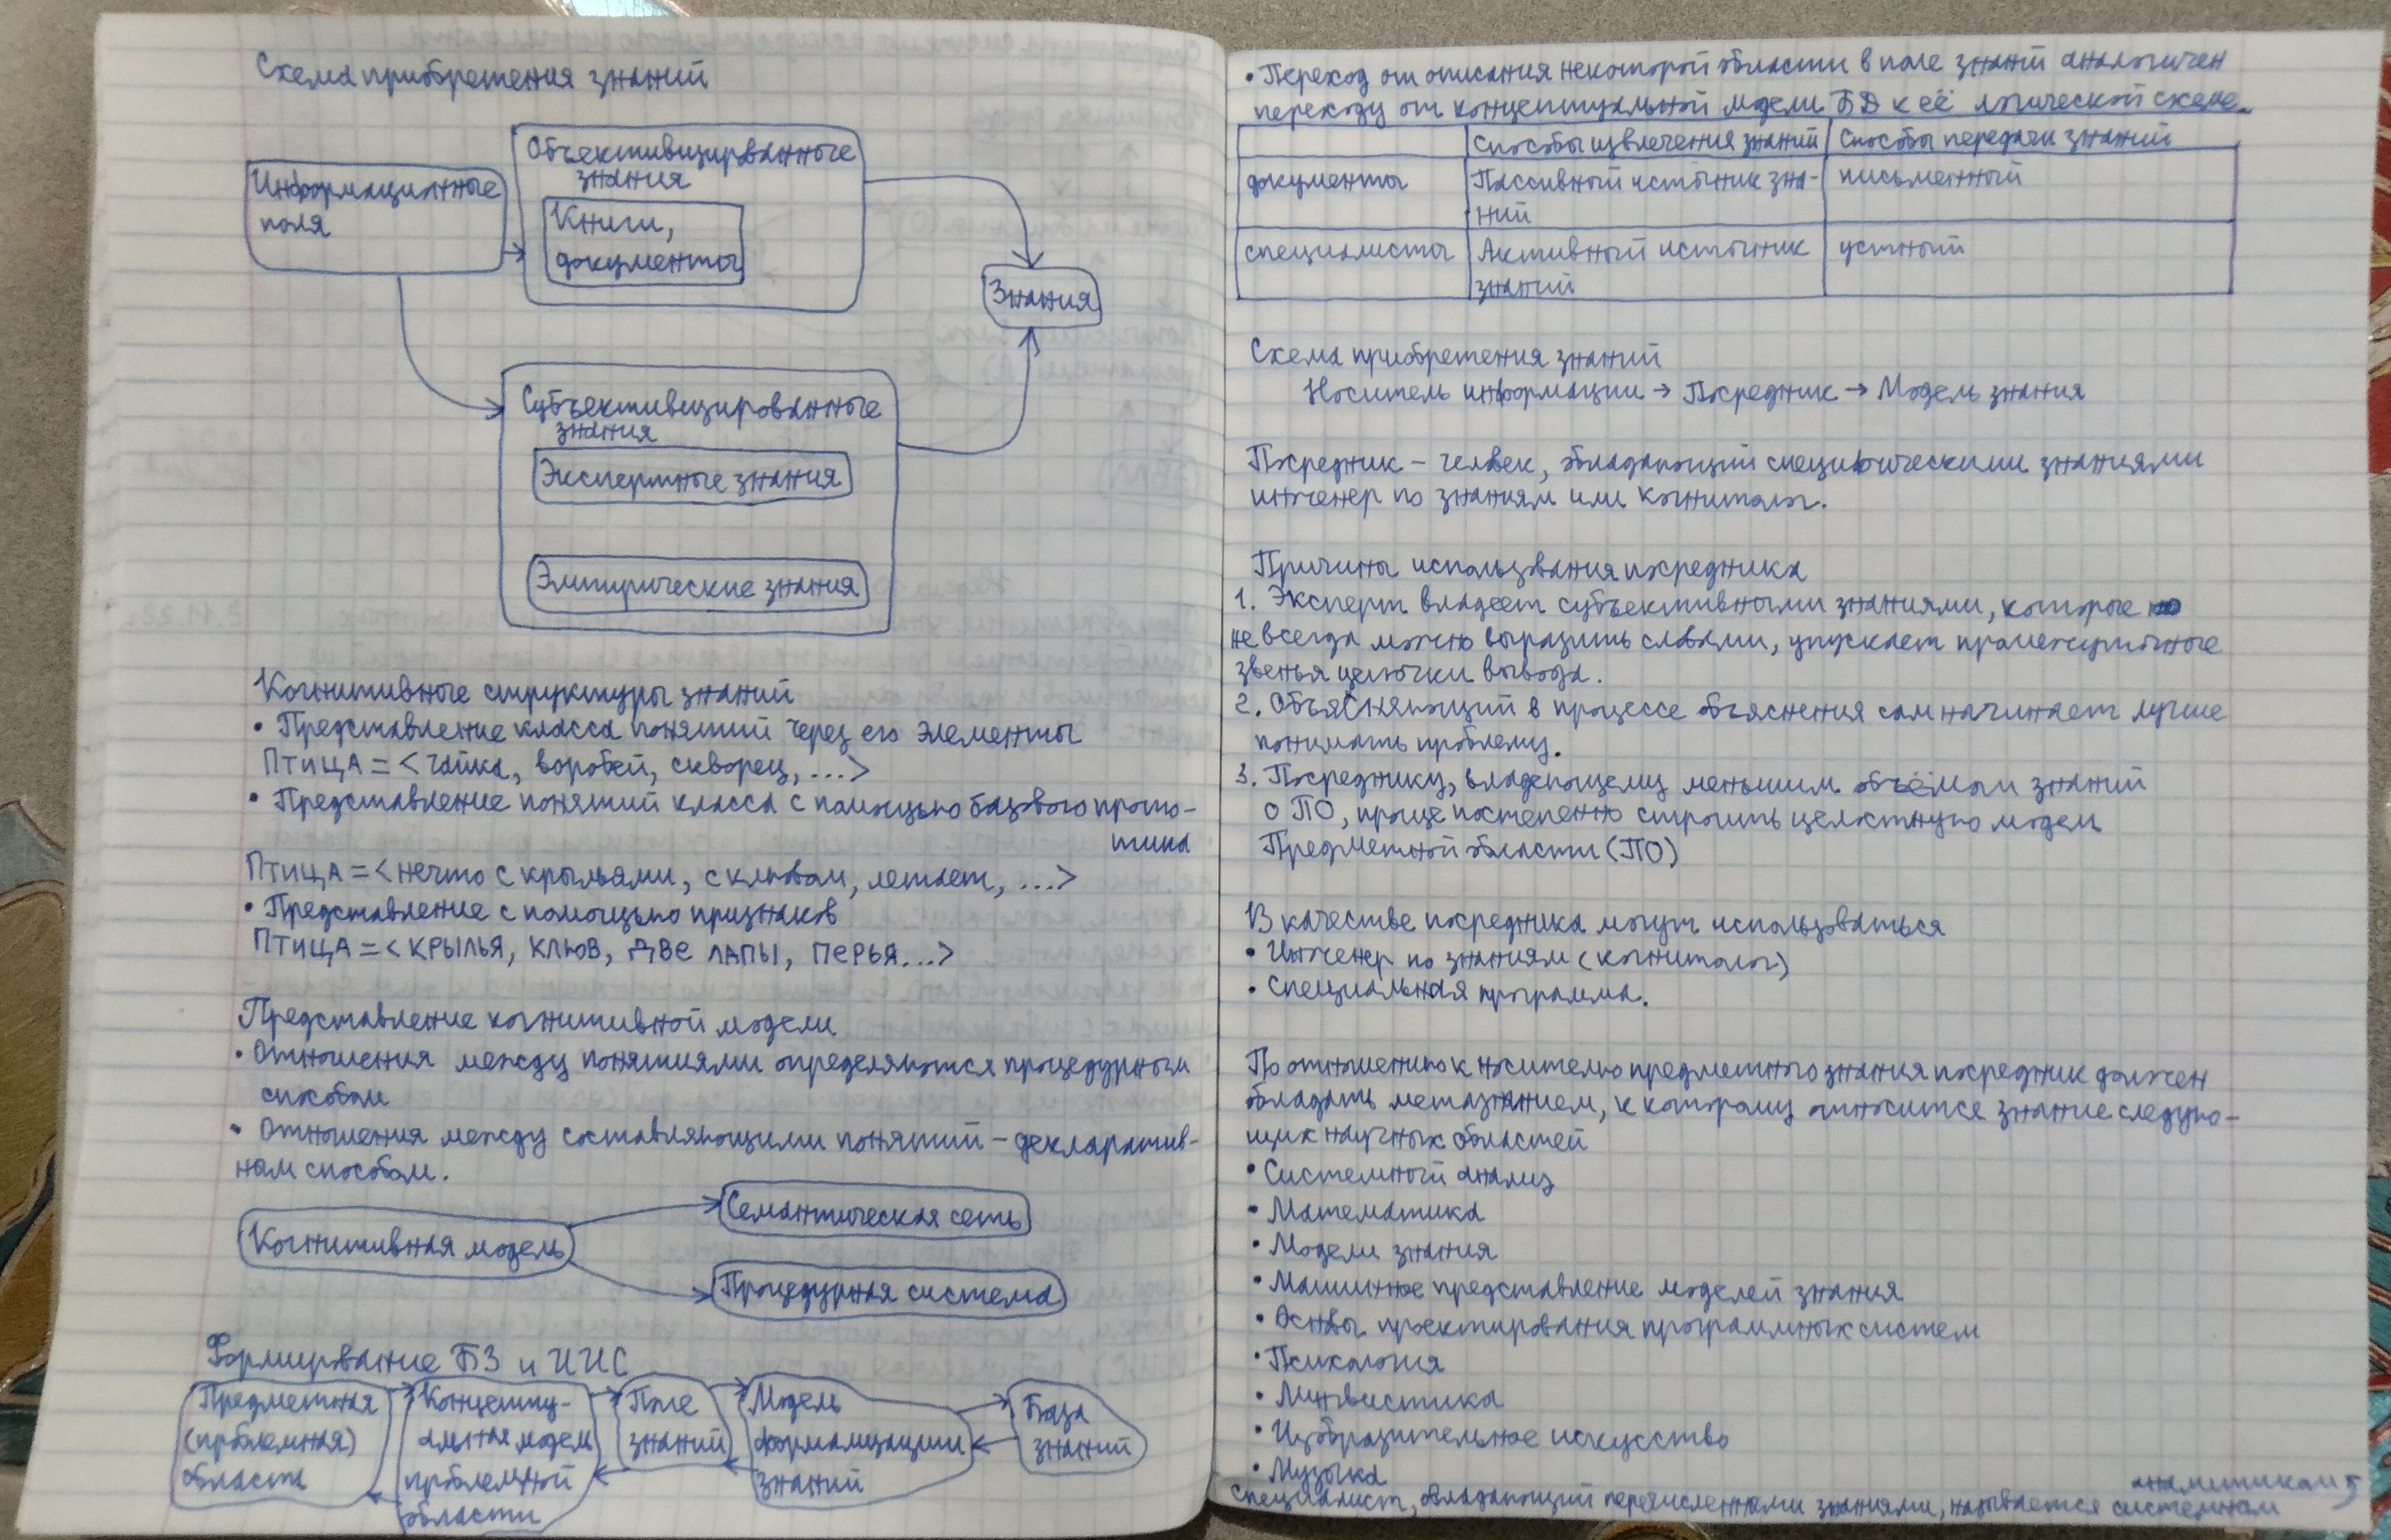 Схема приобретения знаний
Информационные
поля
Объективизированные
знания
Книги,
документы
Знания
Субъективизированные
знания
Экспертные знания
Эмпирические знания
Когнитивные структуры знаний
• Представление класса понятий через его элементы
ПТИЦА = <чайка, воробей, скворец, ...>
• Представление понятий класса с помощью базового прото-
типа
ПТИЦА = <нечто с крыльями, с клювом, летает, ...>
• Представление с помощью признаков
ПТИЦА = <КРЫЛЬЯ, КЛЮВ, ДВЕ ЛАПЫ, ПЕРЬЯ...>
Представление когнитивной модели
• Отношения между понятиями определяются процедурным
способом
• Отношения между составляющими понятий – декларатив-
ном способом.
Когнитивная модель
Семантическая сеть
Процедурная система
Формирование БЗ и ИИС
Предметная
(проблемная)
область
Концепту-
альная модель
проблемной
области
Поле
знаний
Модель
формализации
знаний
База
знаний
• Переход от описания некоторой области в поле знаний аналогичен
переходу от концептуальной модели БД к её логической схеме.
Способы извлечения знаний
Способы передачи знаний
документы
Пассивный источник зна-
ний
письменный
специалисты
Активный источник
знаний
устный
Схема приобретения знаний
Носитель информации → Посредник → Модель знания
Посредник – человек, обладающий специфическими знаниями
инженер по знаниям или когнитолог.
Причины использования посредника
1. Эксперт владеет субъективными знаниями, которые
не всегда можно выразить словами, упускает промежуточные
звенья цепочки вывода.
2. Объясняющий в процессе объяснения сам начинает лучше
понимать проблему.
3. Посреднику, владеющему меньшим объёмом знаний
о ПО, проще постепенно строить целостную модель
Предметной области (ПО)
В качестве посредника могут использоваться
• Инженер по знаниям (когнитолог)
• Специальная программа.
По отношению к носителю предметного знания посредник должен
обладать метазнанием, к которому относится знание следую-
щих научных областей
• Системный анализ
• Математика
• Модели знания
• Машинное представление моделей знания
• Основы проектирования программных систем
• Психология
• Лингвистика
• Изобразительное искусство
• Музыка
Специалист, обладающий перечисленными знаниями, называется системным
аналитиком